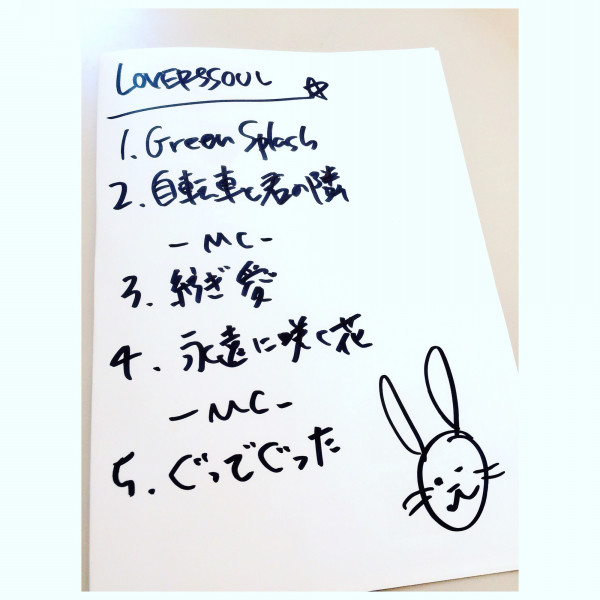 LOVERSSOUL
1. Green Splash
2. 自転車と君の隣
- MC -
3. 紡ぎ愛
4. 永遠に咲く花
- MC -
5. ぐってぐった